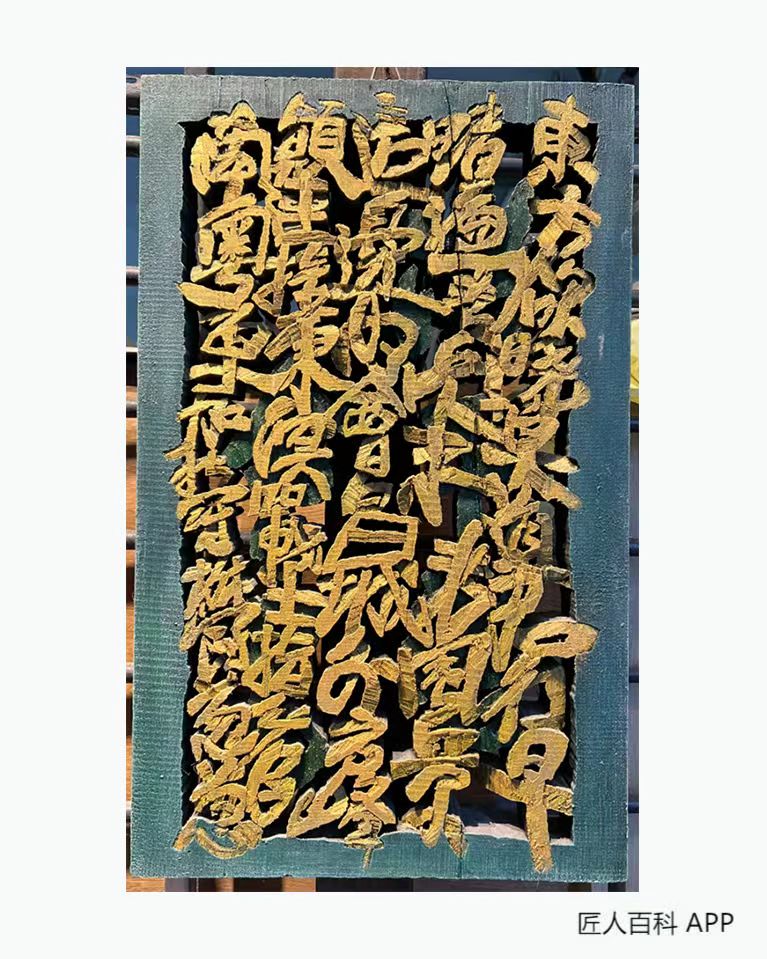 東方欲曉莫道君行早
踏遍青山人未老風景
這邊獨好會昌城外高峰
顛連直接東溟戰士指看
南粵更加
匠人百科 APP